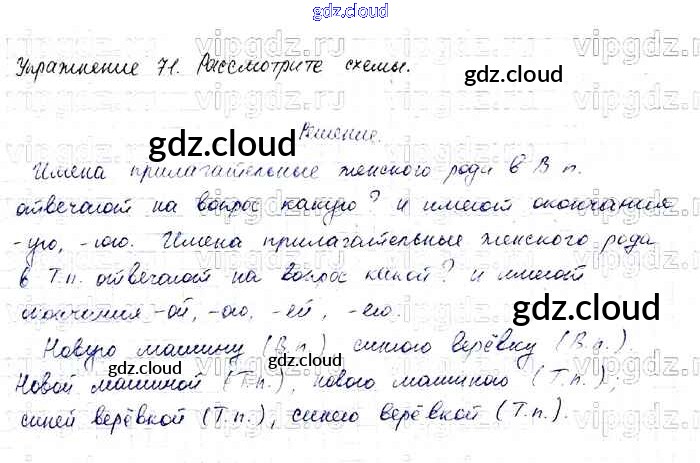 gdz.cloud
Упражнение 71. Рассмотрите схемы.
gdz.cloud
gdz.cloud
Решение.
Имена прилагательные женского рода в В.п.
отвечают на вопрос какую? и имеют окончания
-ую, -юю. Имена прилагательные женского рода
в Т.п. отвечают на вопрос какой? и имеют
окончания -ой, -ою, -ей, -ею.
gdz.cloud
Новую машину (В.п.), синюю верёвку (В.п.).
gdz.cloud
gdz.cloud
Новой машиной (Т.п.), новою машиною (Т.п.),
синей верёвкой (Т.п.), синею верёвкой (Т.п.).